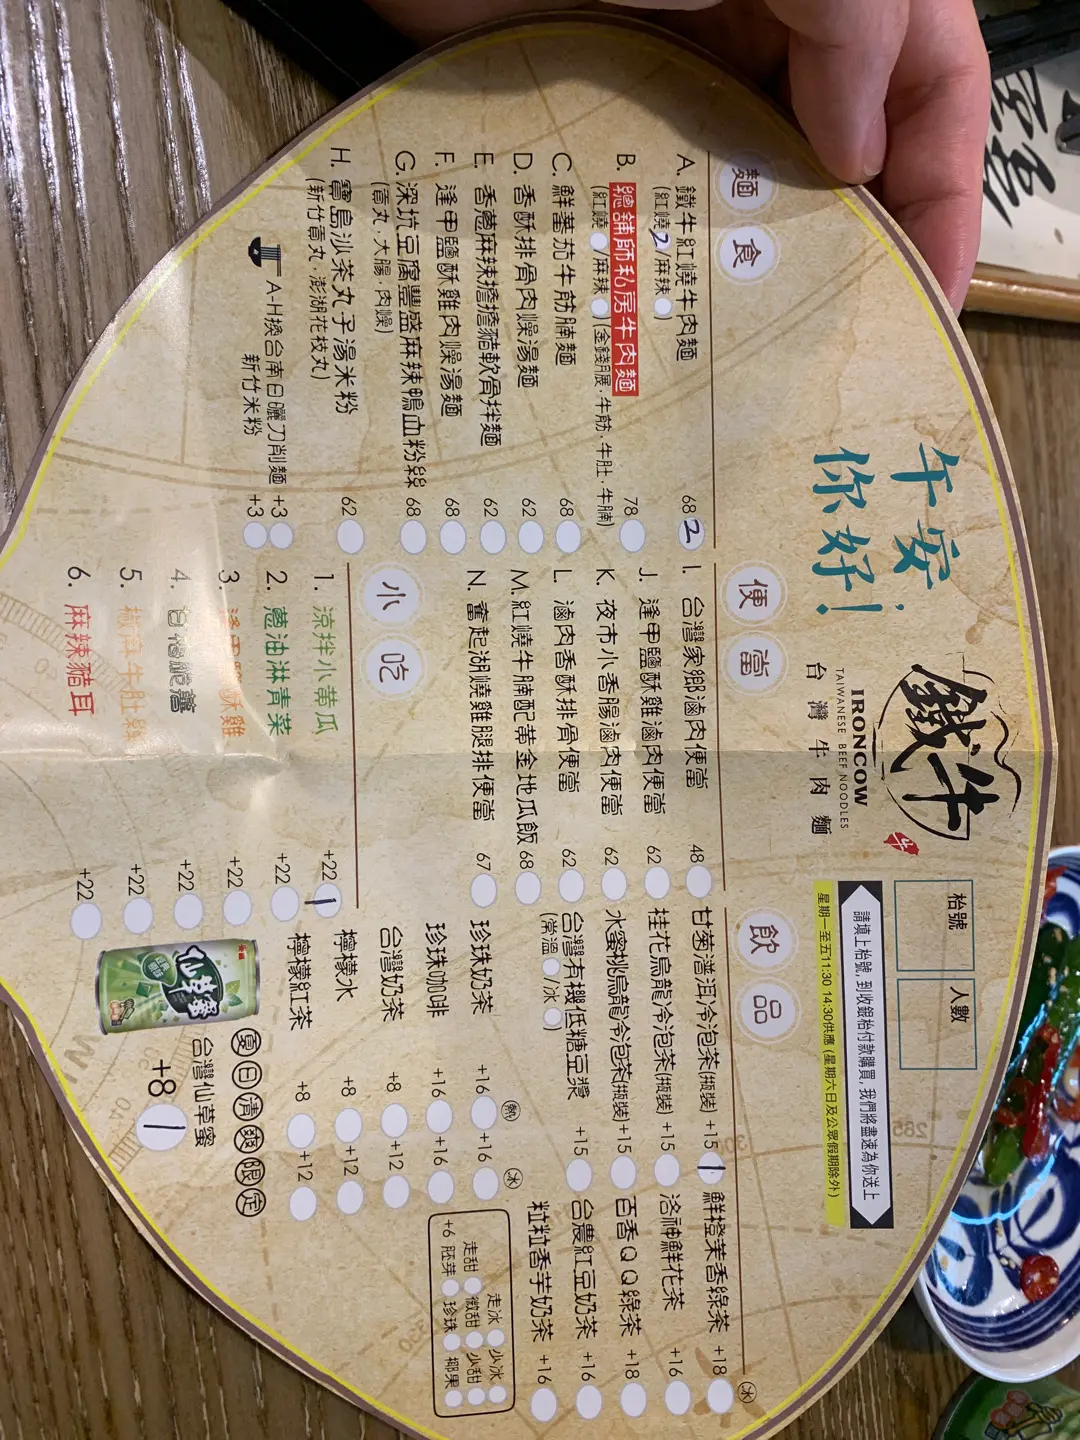 午安,
你好!
鐵牛
IRONCOW
TAIWANESE BEEF NOODLES
台灣牛肉麵
枱號
人數
請填上枱號,到收銀枱付款購買,我們將盡速為你送上
星期一至五11:30 14:30供應 (星期六日及公眾假期除外)
麵食
A. 鐵牛紅燒牛肉麵 68 2
(紅燒 2 /麻辣 )
B. 總舖師私房牛肉麵 78
(紅燒 /麻辣 ) (金錢𦟌．牛筋．牛肚．牛腩)
C. 鮮蕃茄牛筋腩麵 68
D. 香酥排骨肉燥湯麵 62
E. 香蔥麻辣擔擔豬軟骨拌麵 62
F. 逢甲鹽酥雞肉燥湯麵 68
G. 深坑豆腐豐盛麻辣鴨血粉絲 68
(貢丸．大腸．肉燥)
H. 寶島沙茶丸子湯米粉 62
(新竹貢丸．澎湖花枝丸)
A-H換台南日曬刀削麵 +3
新竹米粉 +3
便當
I. 台灣家鄉滷肉便當 48
J. 逢甲鹽酥雞滷肉便當 62
K. 夜市小香腸滷肉便當 62
L. 滷肉香酥排骨便當 62
M. 紅燒牛腩配黃金地瓜飯 68
N. 奮起湖燒雞腿排便當 67
小吃
1. 涼拌小黃瓜 +22 1
2. 蔥油淋青菜 +22
3. 逢甲鹽酥雞 +22
4. 甘梅脆薯 +22
5. 椒麻牛肚絲 +22
6. 麻辣豬耳 +22
飲品
甘菊普洱冷泡茶(瓶裝) +15 1
桂花烏龍冷泡茶(瓶裝) +15
水蜜桃烏龍冷泡茶(瓶裝) +15
台灣有機低糖豆漿 +15
(常溫 /冰 )
熱 冰
珍珠奶茶 +16 +16
珍珠咖啡 +16 +16
台灣奶茶 +8 +12
檸檬水 +8 +12
檸檬紅茶 +8 +12
冰
鮮橙茉香綠茶 +18
洛神鮮花茶 +16
百香QQ綠茶 +18
台農紅豆奶茶 +16
粒粒香芋奶茶 +16
走冰 少冰
走甜 微甜 少甜
+6 胚芽 珍珠 椰果
夏日清爽限定
台灣仙草蜜
+8 1
仙草蜜